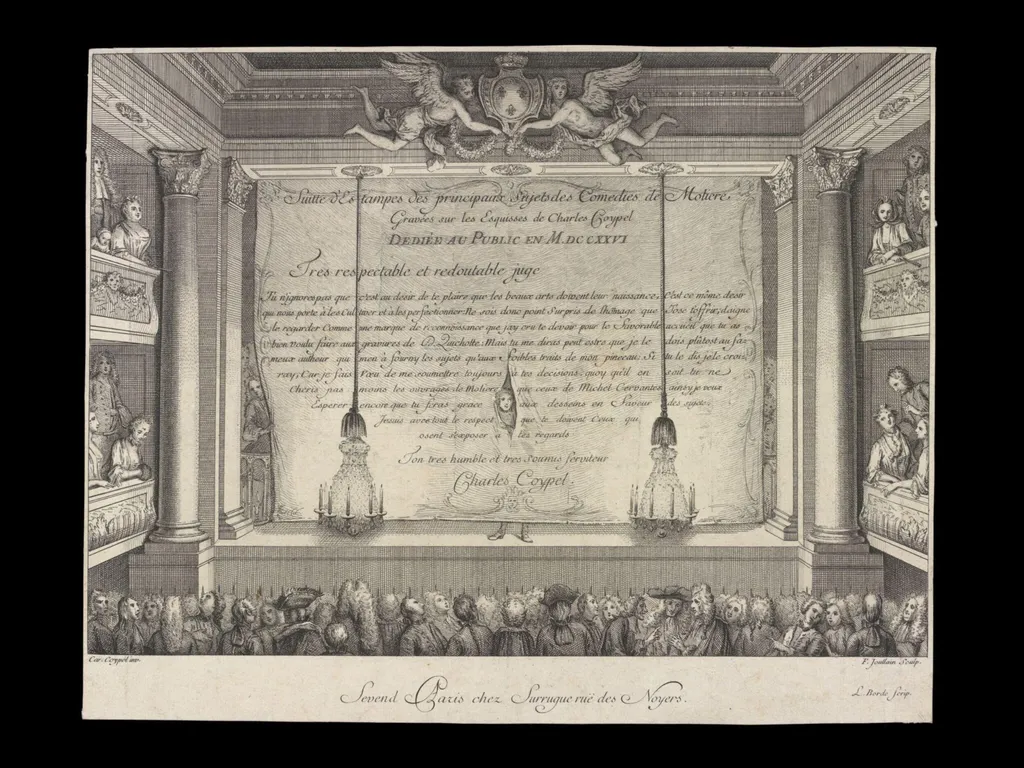 Suitte d'Estampes des principaux Sujets des Comedies de Moliere.
Gravées sur les Esquisses de Charles Coypel
DEDIÉE AU PUBLIC EN M.DCCXXVI
Tres respectable et redoutable juge
Tu n'ignores pas que c'est au desir de te plaire que les beaux arts doivent leur naissance: C'est ce même desir
qui nous porte à les Cultiver et a les perfectionner: Ne sois donc point Surpris de l'homage que j'ose t'offrir, daigne
le regarder Comme une marque de reconnoissance que jay cru te devoir pour le favorable accueil que tu as
bien voulu faire aux gravures de D. Quichotte: Mais tu me diras peut estre que je le dois plûtost au fa-
meux autheur qui m'en à fourny les sujets qu'aux foibles traits de mon pinceau: Si tu le dis je le croi-
ray; Car je fais Vœu de me soumettre toujours à tes decisions; quoy qu'il en soit tu ne
Cheris pas moins les ouvrages de Moliere que ceux de Michel Cervantes ainsy je veux
Esperer encore que tu feras grace aux desseins en faveur des sujets.
Jesuis avec tout le respect que te doivent Ceux qui
osent s'exposer à tes regards
Ton tres humble et tres soumis serviteur
Charles Coypel.
Car. Coypel inv.
F. Joullain Sculp.
Sevend Paris chez Surrugue ruë des Noyers.
L. Borde scrip.